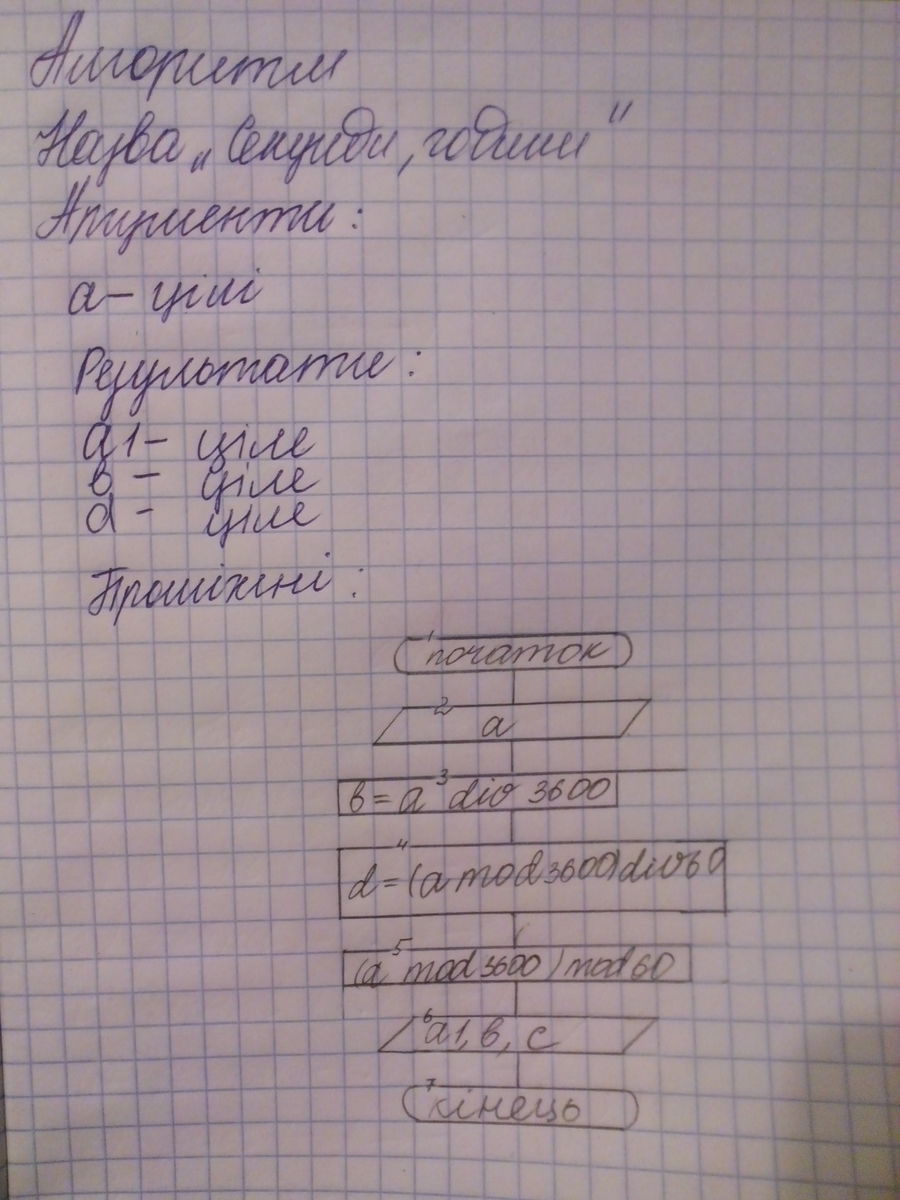 Алгоритм
Назва „Секунди, години"
Аргументи:
а – цілі
Результати:
а1 – ціле
в – ціле
d – ціле
Проміжні:
1 початок
2 а
3 в = а div 3600
4 d = (a mod 3600) div 60
5 (a mod 3600) mod 60
6 а1, в, с
7 кінець